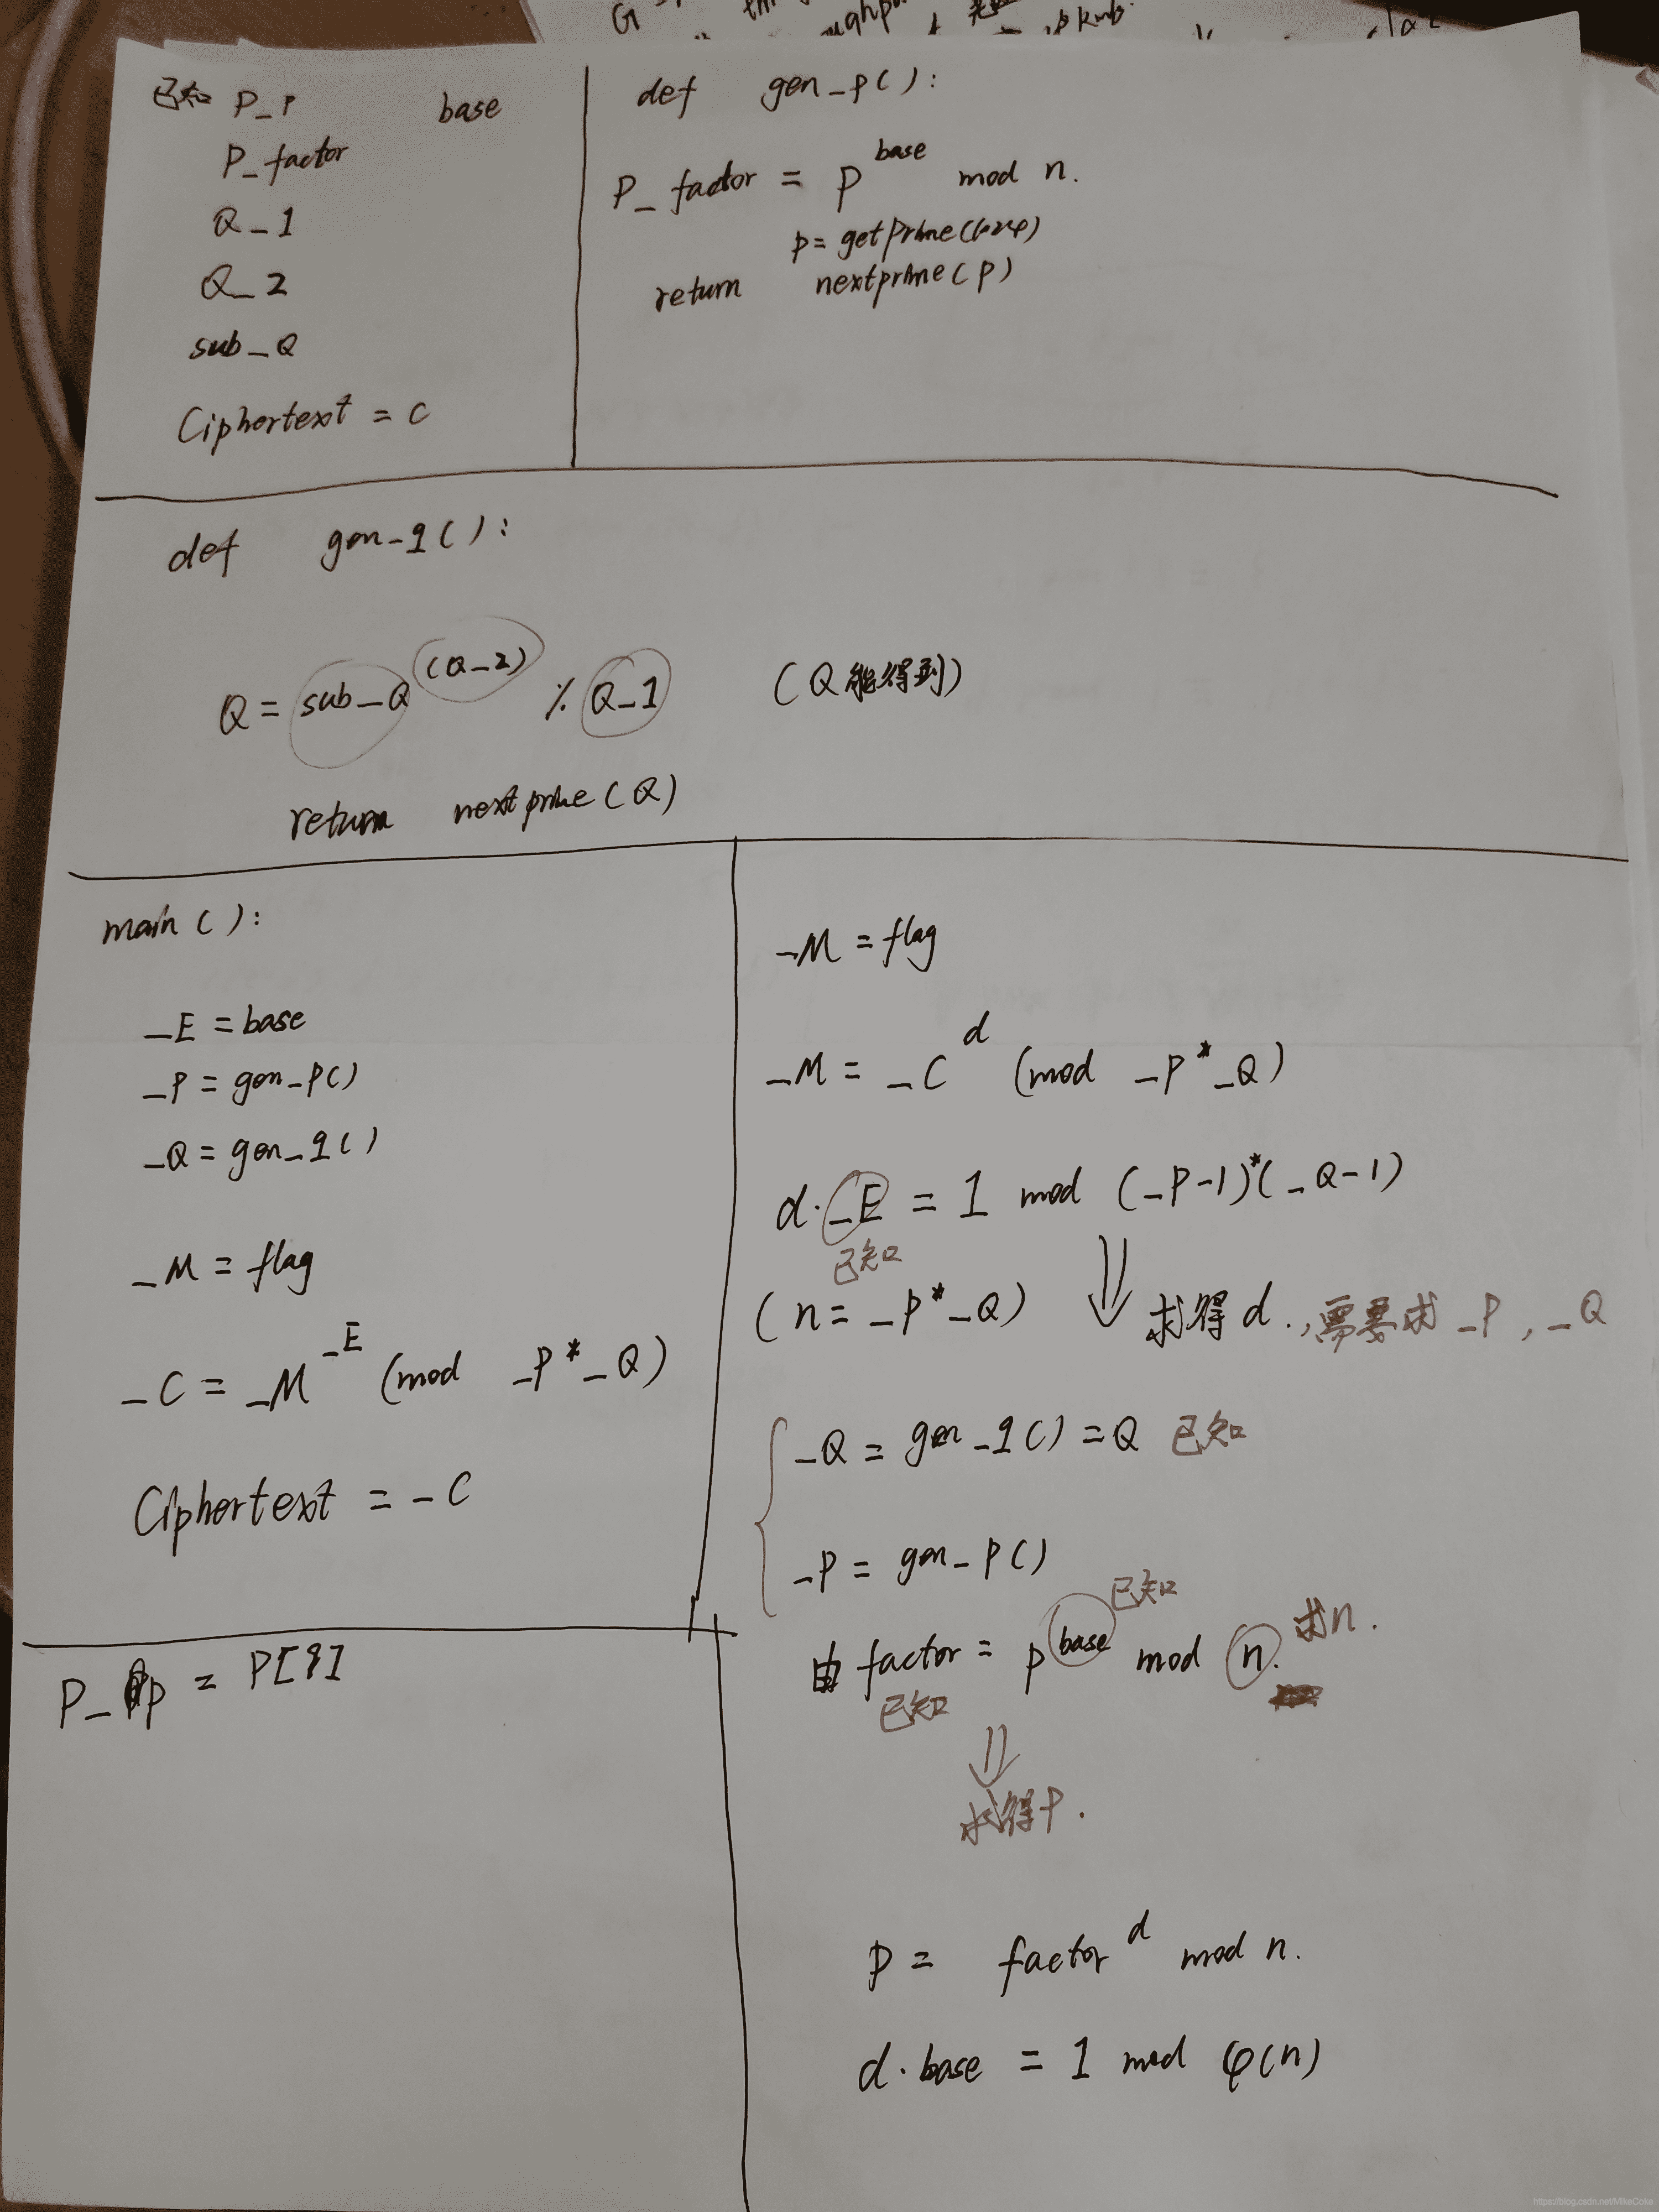 已知 P_P base
P_factor
Q_1
Q_2
sub_Q
Ciphertext = C
def gen_P():
P_factor = P^base mod n.
p = getPrime(
return nextprime(P)
def gen_q():
Q = sub_Q^(Q_2) % Q_1 (Q能得到)
return nextprime(Q)
main():
_E = base
_P = gen_P()
_Q = gen_q()
_M = flag
_C = _M^_E (mod _P*_Q)
Ciphertext = _C
_M = flag
_M = _C^d (mod _P*_Q)
d·_E = 1 mod (_P-1)*(_Q-1)
已知
(n = _P*_Q) 求得d.,需要求_P,_Q
_Q = gen_q() = Q 已知
_P = gen_P()
已知
由factor = p^base mod n. 求n.
已知
求得P.
P = factor^d mod n.
d·base = 1 mod φ(n)
P_p = P[9]
https://blog.csdn.net/MikeCoke